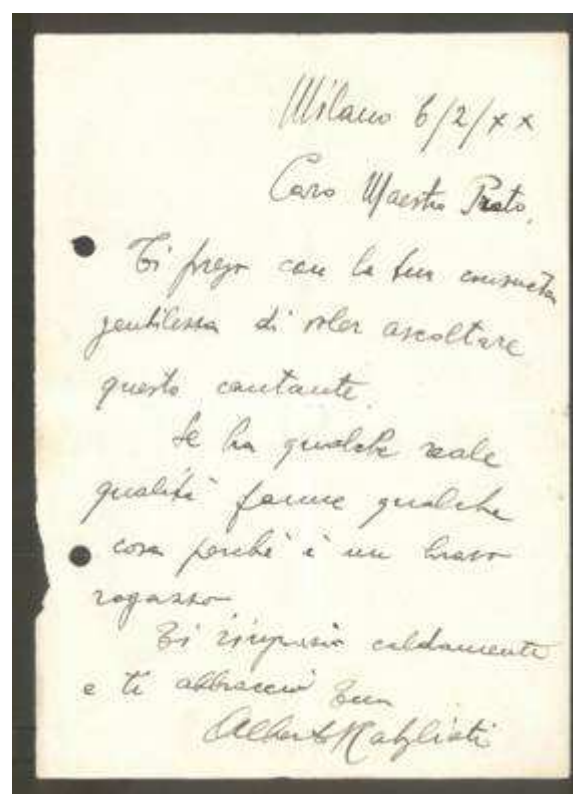 Milano 6/2/XX
Caro Maestro Prato,
Ti prego con la tua consueta
gentilezza di voler ascoltare
questo cantante.
Se ha qualche reale
qualità fanne qualche
cosa perché è un bravo
ragazzo
Ti ringrazio caldamente
e ti abbraccio tuo
Alberto Rabagliati